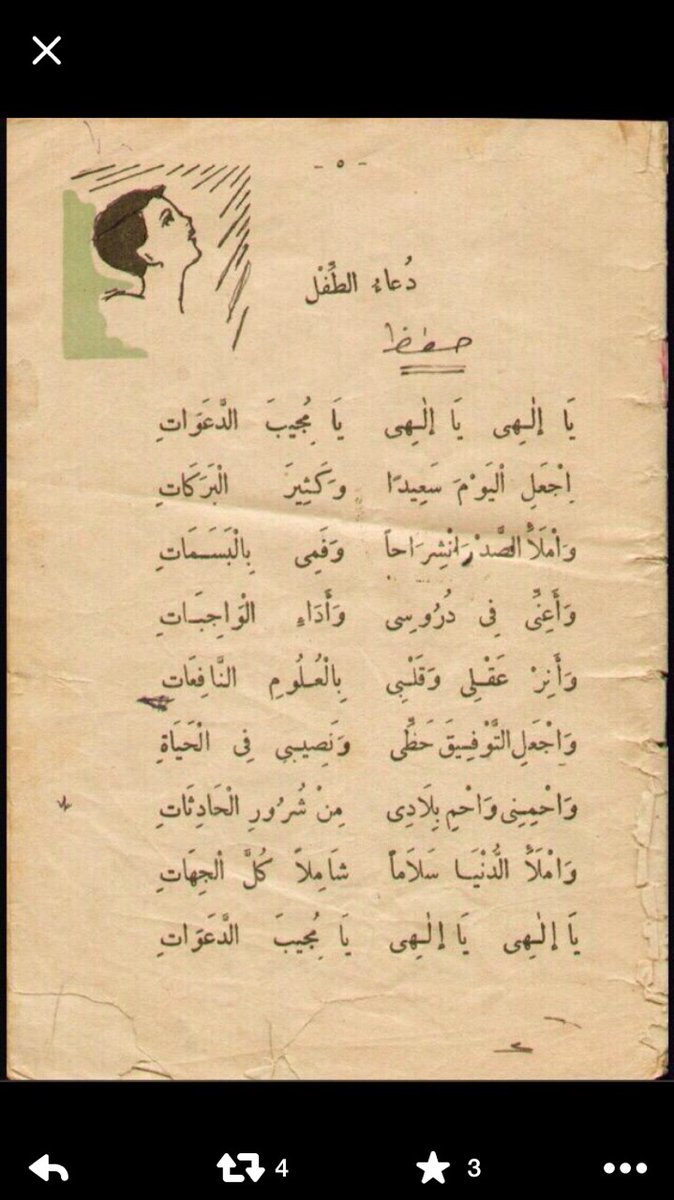 - ٥ -
دُعاءُ الطِّفْل
حفظ
يَا إِلٰـهِى يَا إِلٰـهِى يَا مُجِيبَ الدَّعَوَاتِ
اِجْعَلِ الْيَوْمَ سَعِيدًا وَكَثِيرَ الْبَرَكَاتِ
وَامْلَأِ الصَّدْرَ انْشِرَاحاً وَفَمِى بِالْبَسَمَاتِ
وَأَعِنِّى فِى دُرُوسِى وَأَدَاءِ الْوَاجِبَاتِ
وَأَنِرْ عَقْلِى وَقَلْبِى بِالْعُلُومِ النَّافِعَات
وَاجْعَلِ التَّوْفِيقَ حَظِّى وَنَصِيبِى فِى الْحَيَاةِ
وَاحْمِنِى وَاحْمِ بِلَادِى مِنْ شُرُورِ الْحَادِثَاتِ
وَامْلَأِ الدُّنْيَا سَلَاماً شَامِلاً كُلَّ الْجِهَاتِ
يَا إِلٰـهِى يَا إِلٰـهِى يَا مُجِيبَ الدَّعَوَاتِ
4 3